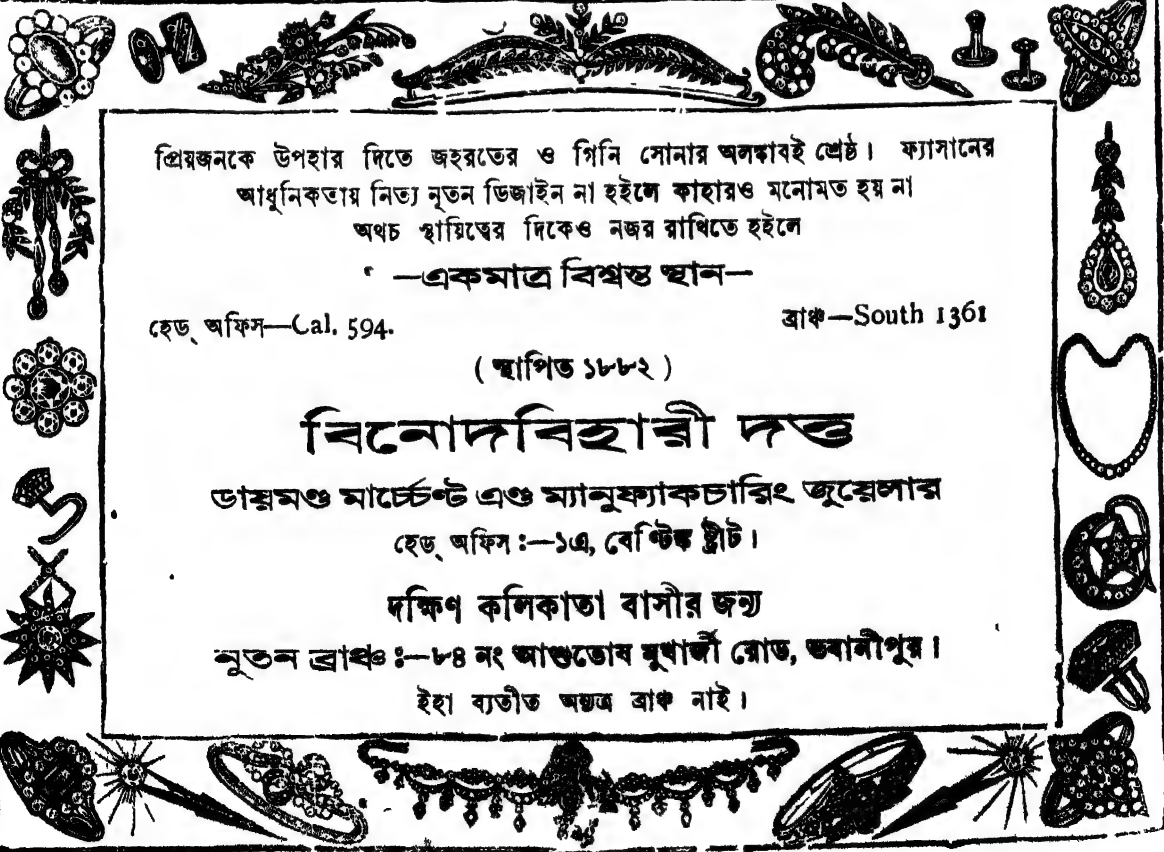 প্রিয়জনকে উপহার দিতে জহরতের ও গিনি সোনার অলঙ্কাবই শ্রেষ্ঠ। ফ্যাসানের
আধুনিকতায় নিত্য নূতন ডিজাইন না হইলে কাহারও মনোমত হয় না
অথচ স্থায়িত্বের দিকেও নজর রাখিতে হইলে
—একমাত্র বিশ্বস্ত স্থান—
হেড্ অফিস—Cal. 594. ব্রাঞ্চ—South 1361
( স্থাপিত ১৮৮২ )
বিনোদবিহারী দত্ত
ডায়মণ্ড মার্চ্চেণ্ট এণ্ড ম্যানুফ্যাকচারিং জুয়েলার
হেড্ অফিস :—১এ, বেণ্টিঙ্ক ষ্ট্রীট।
দক্ষিণ কলিকাতা বাসীর জন্য
নূতন ব্রাঞ্চ :—৮৪ নং আশুতোষ মুখার্জী রোড, ভবানীপুর।
ইহা ব্যতীত অন্যত্র ব্রাঞ্চ নাই।